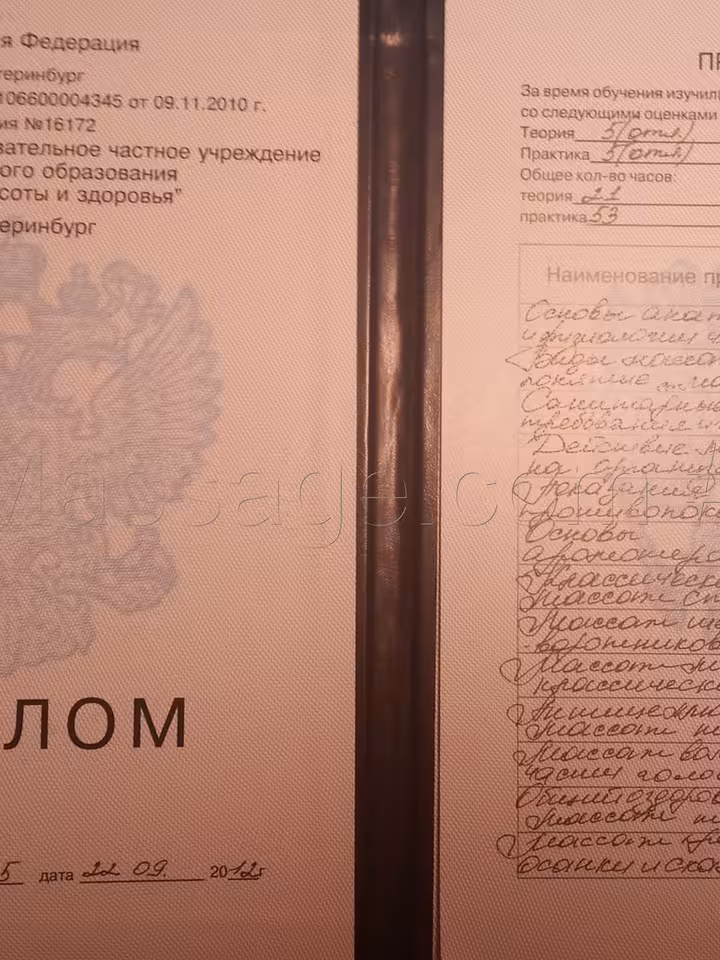 я Федерация
теринбург
106600004345 от 09.11.2010 г.
ия №16172
вательное частное учреждение
ого образования
соты и здоровья"
еринбург
ЛОМ
5 дата 22 09. 2012г
За время обучения изучил
со следующими оценками
Теория 5(отл)
Практика 5(отл)
Общее кол-во часов:
теория 21
практика 53
Наименование пр
Основы анат
и физиологии ч
Виды массаж
понятие
Санитарны
требования
Действие
на организ
Показания
противопок
Основы
аромотера
Классическ
массаж сп
Массаж ше
воротников
Массаж
классическ
Антицеллю
массаж
Массаж вол
части голо
Общий оздоров
массаж
Массаж
осанки и ска
Massage.com